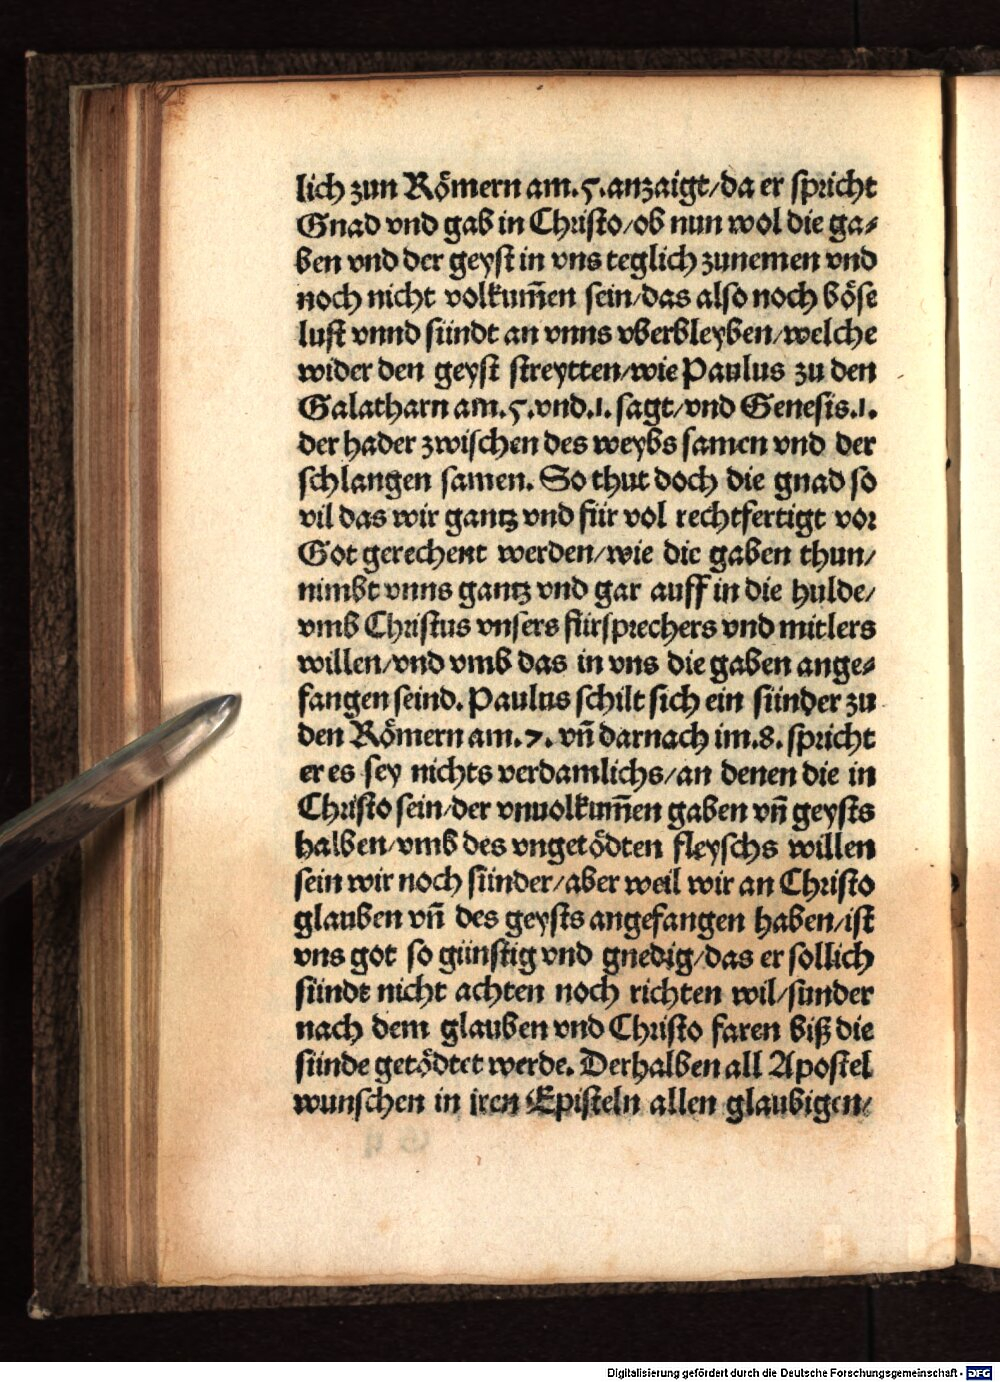 lich zun Römern am.5.anzaigt/da er spricht
Gnad vnd gab in Christo/ob nun wol die ga⸗
ben vnd der geyst in vns teglich zunemen vnd
noch nicht volkum̄en sein/das also noch böse
lust vnnd sündt an vnns vberbleyben/welche
wider den geyst streytten/wie Paulus zu den
Galatharn am.5.vnd.1.sagt/vnd Genesis.1.
der hader zwischen des weybs samen vnd der
schlangen samen. So thut doch die gnad so
vil das wir gantz vnd für vol rechtfertigt vor
Got gerechent werden/wie die gaben thun/
nimbt vnns gantz vnd gar auff in die hulde/
vmb Christus vnsers fürsprechers vnd mitlers
willen/vnd vmb das in vns die gaben ange⸗
fangen seind. Paulus schilt sich ein sünder zu
den Römern am.7. vn̄ darnach im.8. spricht
er es sey nichts verdamlichs/an denen die in
Christo sein/der vnuolkum̄en gaben vn̄ geysts
halben/vmb des vngetödten fleyschs willen
sein wir noch sünder/aber weil wir an Christo
glauben vn̄ des geysts angefangen haben/ist
vns got so günstig vnd gnedig/das er sollich
sündt nicht achten noch richten wil/sunder
nach dem glauben vnd Christo faren biß die
sünde getödtet werde. Derhalben all Apostel
wunschen in iren Episteln allen glaubigen/
Digitalisierung gefördert durch die Deutsche Forschungsgemeinschaft - DFG